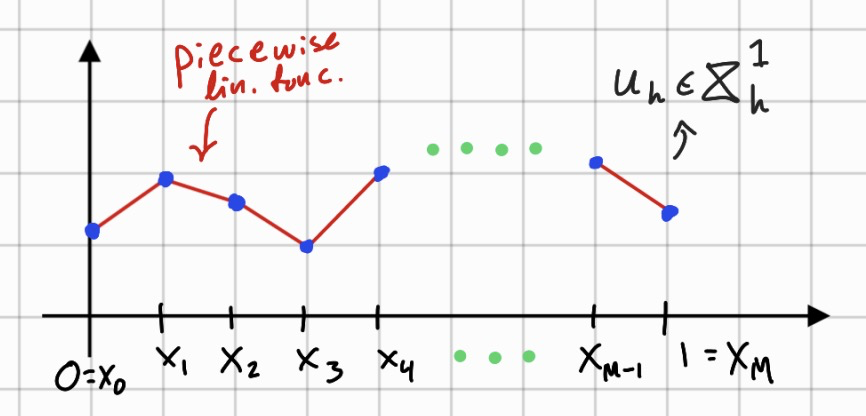 piecewise
lin. func.
u_h ∈ X_h^1
0=x_0
x_1
x_2
x_3
x_4
x_{M-1}
1 = x_M